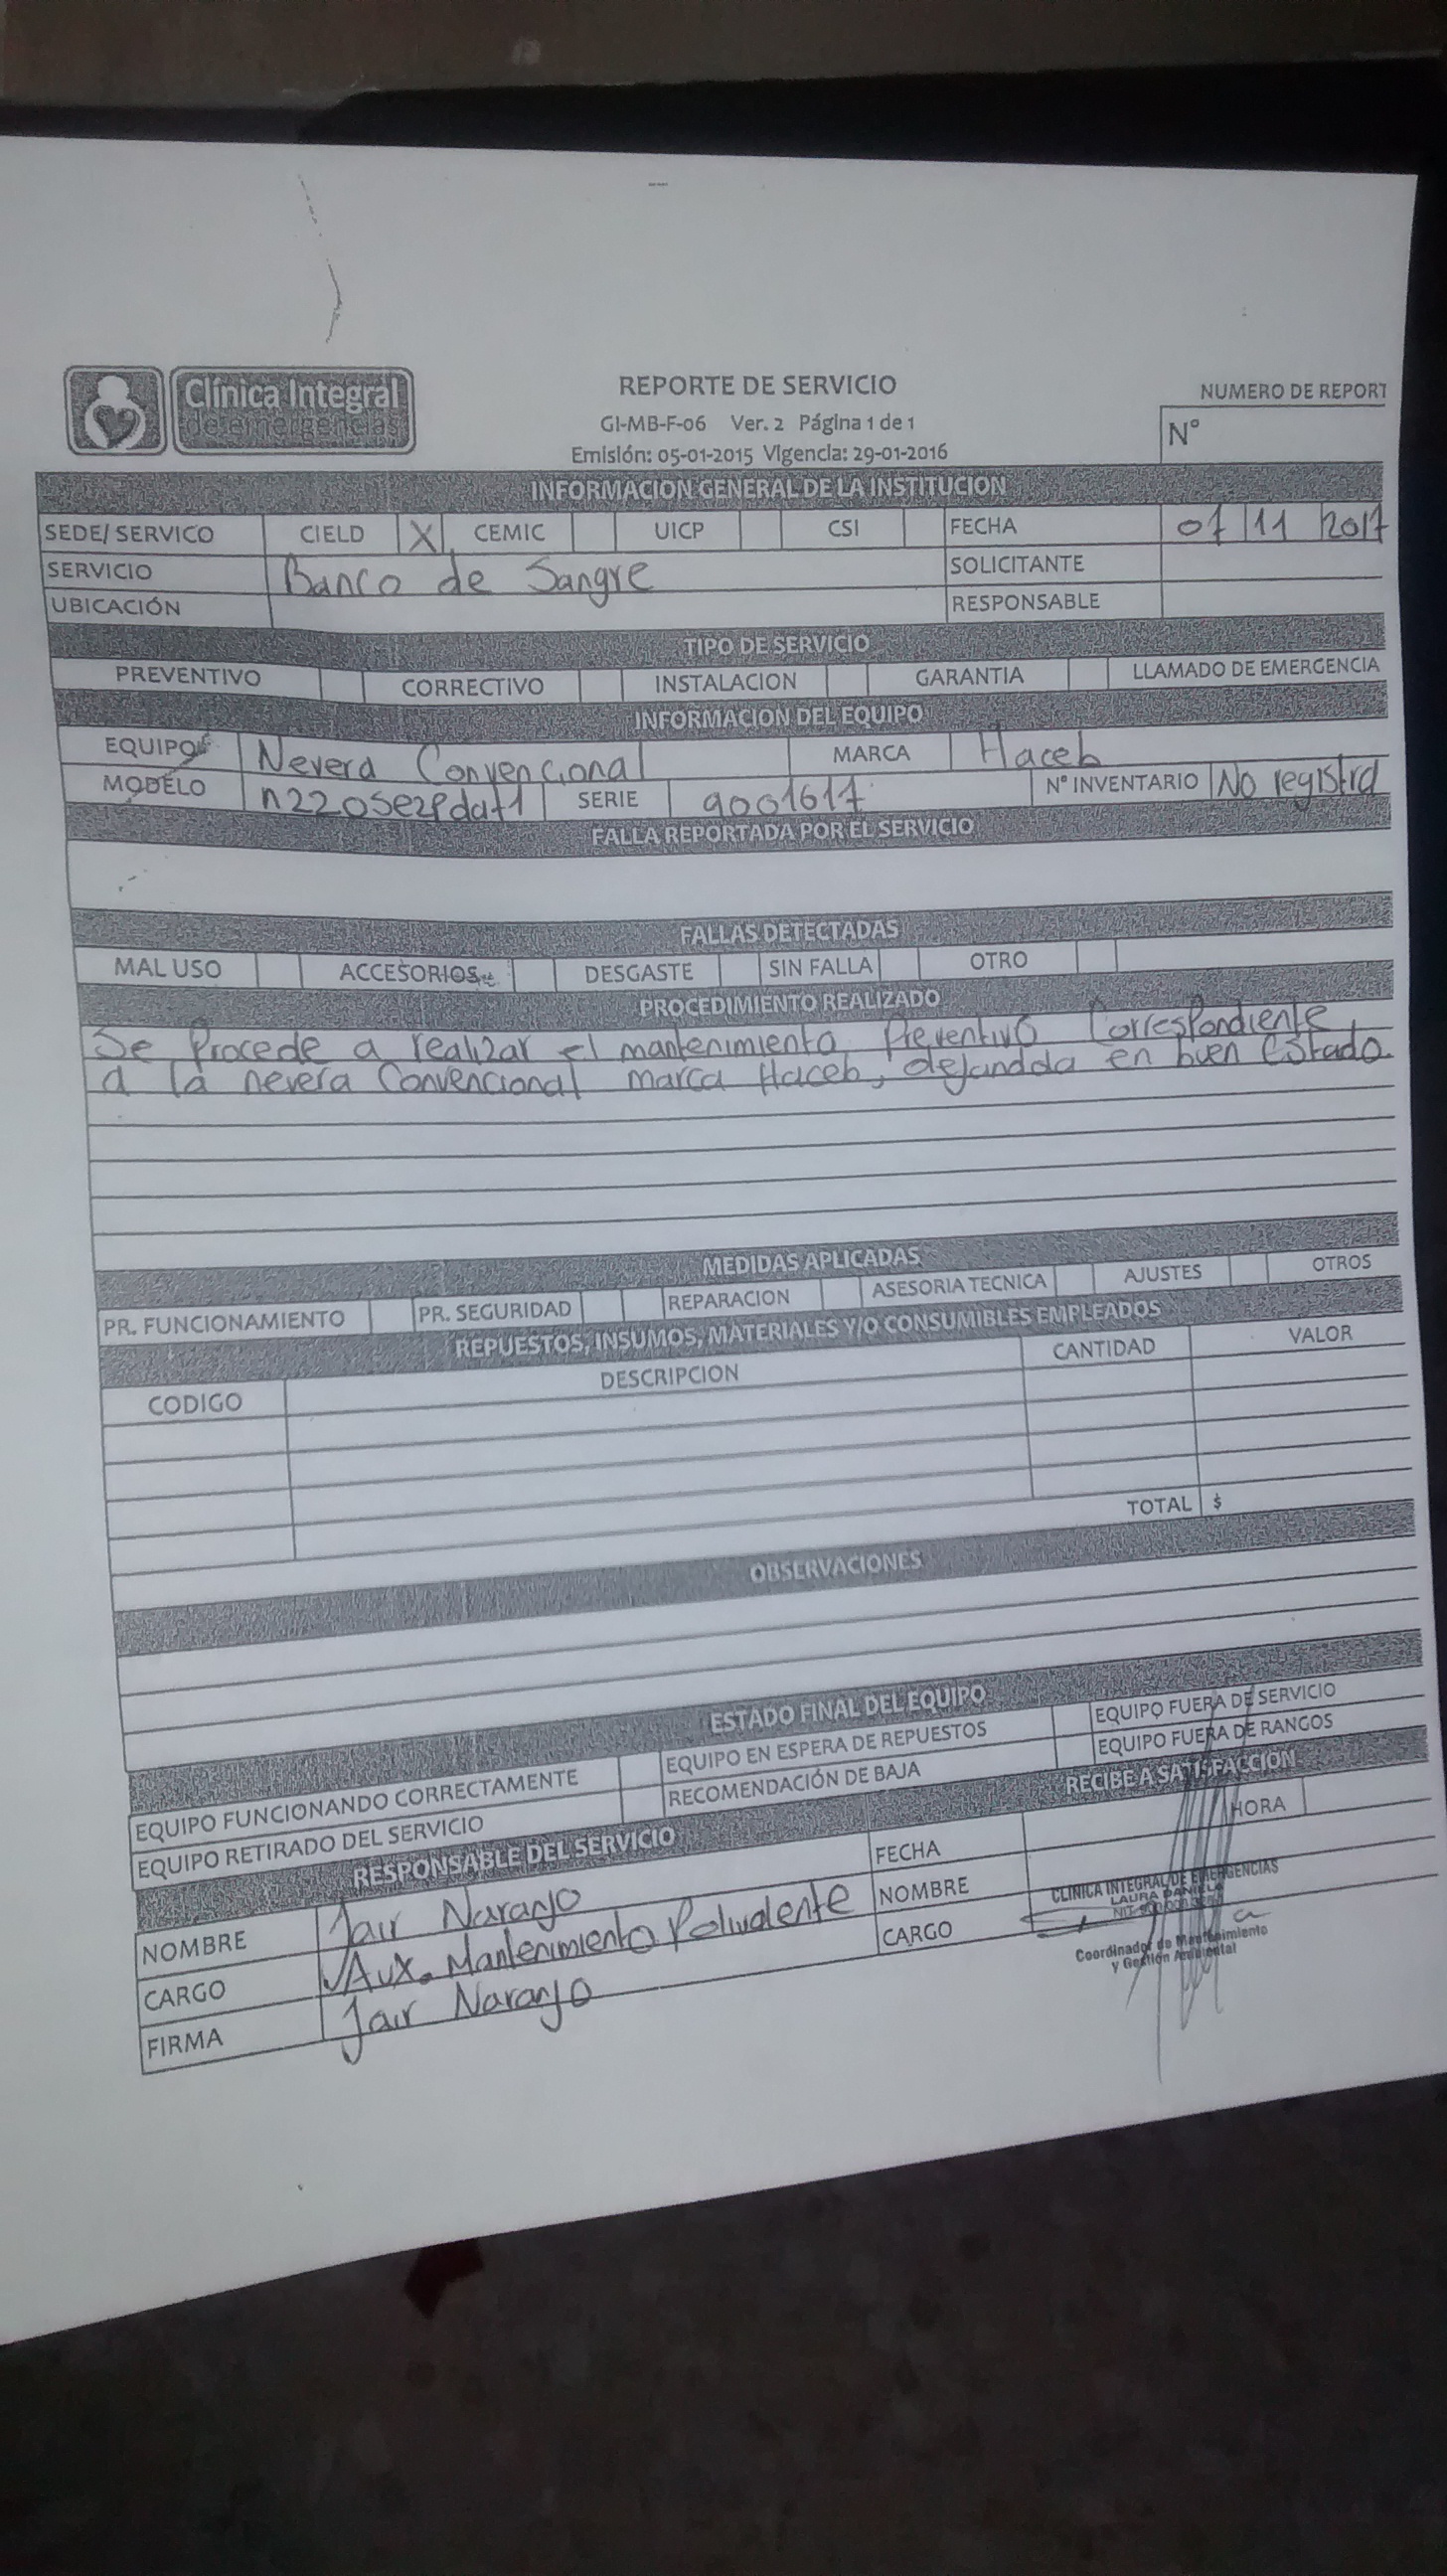 Clínica Integral
de emergencias
REPORTE DE SERVICIO
GI-MB-F-06 Ver. 2 Página 1 de 1
Emisión: 05-01-2015 Vigencia: 29-01-2016
NUMERO DE REPORT
N°
INFORMACION GENERAL DE LA INSTITUCION
SEDE/ SERVICO CIELD X CEMIC UICP CSI FECHA 07 11 2017
SERVICIO Banco de Sangre SOLICITANTE
UBICACIÓN RESPONSABLE
TIPO DE SERVICIO
PREVENTIVO CORRECTIVO INSTALACION GARANTIA LLAMADO DE EMERGENCIA
INFORMACION DEL EQUIPO
EQUIPO Nevera Convencional MARCA Haceb
MODELO SERIE 9001617 N° INVENTARIO No registra
FALLA REPORTADA POR EL SERVICIO
FALLAS DETECTADAS
MAL USO ACCESORIOS DESGASTE SIN FALLA OTRO
PROCEDIMIENTO REALIZADO
Se Procede a realizar el mantenimiento Preventivo Correspondiente,
a la nevera Convencional marca Haceb, dejandola en buen Estado.
MEDIDAS APLICADAS
PR. FUNCIONAMIENTO PR. SEGURIDAD REPARACION ASESORIA TECNICA AJUSTES OTROS
REPUESTOS, INSUMOS, MATERIALES Y/O CONSUMIBLES EMPLEADOS
CODIGO DESCRIPCION CANTIDAD VALOR
TOTAL $
OBSERVACIONES
ESTADO FINAL DEL EQUIPO
EQUIPO FUNCIONANDO CORRECTAMENTE EQUIPO EN ESPERA DE REPUESTOS EQUIPO FUERA DE SERVICIO
EQUIPO RETIRADO DEL SERVICIO RECOMENDACIÓN DE BAJA EQUIPO FUERA DE RANGOS
RESPONSABLE DEL SERVICIO RECIBE A SATISFACCION
FECHA HORA
NOMBRE Jair Naranjo NOMBRE
CARGO Aux. Mantenimiento Polivalente CARGO
FIRMA Jair Naranjo
CLINICA INTEGRAL DE EMERGENCIAS
LAURA DANIELA
Coordinador de Mantenimiento
y Gestión Ambiental